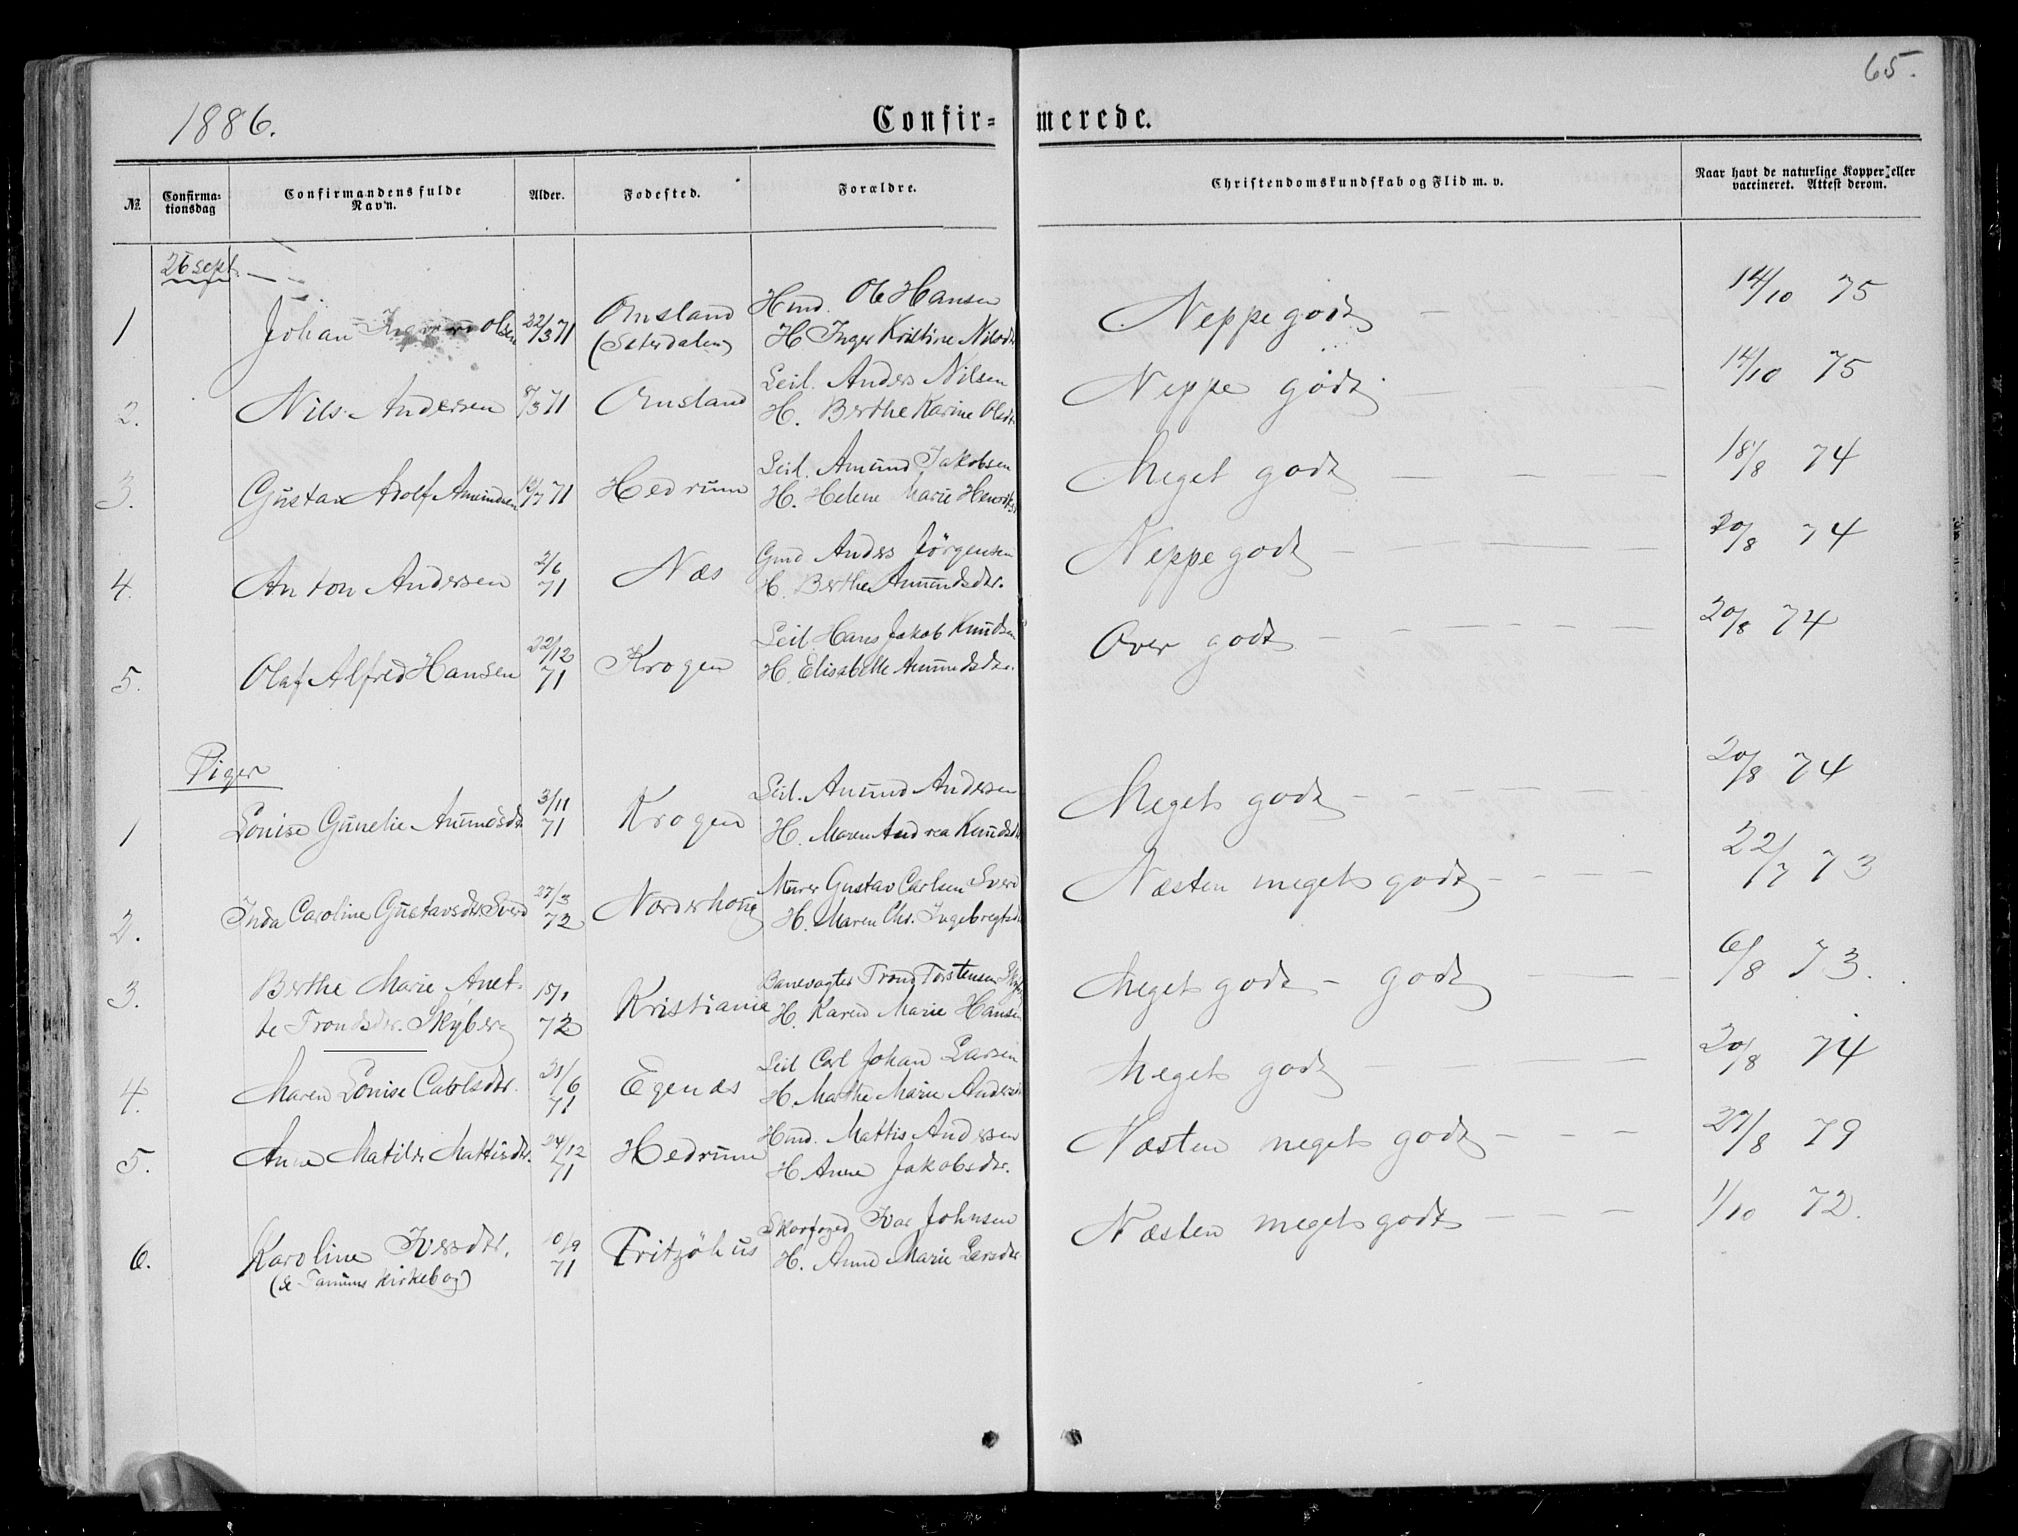 65.
1886.
Confir- merede.
№
Confirma-
tionsdag
Confirmandens fulde
Navn.
Alder.
Fodested.
Forældre.
Christendomskundskab og Flid m. v.
Naar havt de naturlige Kopper eller
vaccineret. Attest derom.
26 sept.
1 Johan Olsen 22/3 71 Omsland (Seterdalen) Hmd. Ole Hansen
H Inger Kristine Nilsdt Neppe godt 14/10 75
2. Nils Andersen 8/3 71 Omsland Leil. Anders Nilsen
H. Berthe Karine Olsdt. Neppe godt 14/10 75
3. Gustav Adolf Amundsen 71 Hedrum Leil. Amund Jakobsen
H. Helene Marie Meget godt 18/8 74
4. Anton Andersen 2/6 71 Næs Gmd Anders Jörgensen
H. Berthe Amundsdtr. Neppe godt 20/8 74
5. Olaf Alfred Hansen 22/12 71 Krogen Leil Hans Jakob Knudsen
H. Elisabelle Amundsdtr. Over godt 20/8 74
Piger
1 Lovise Gunelie Amundsdt 3/11 71 Krogen Leil. Amund Andersen
H. Maren Andrea Knudsdt Meget godt 20/8 74
2. Inda Caroline Gustavsdtr Sverd 27/3 72 Norderhoug Murer Gustav Carlsen Sverd
H. Maren Chr. Ingebregtsdt Næsten meget godt 22/7 73
3. Berthe Marie Anet-
te Trondsdtr. Skyberg 15/1 72 Kristiania Banevogter Trond Torstensen
H. Karen Marie Hansen Meget godt - godt 6/8 73.
4. Maren Lovise Carlsdtr. 21/6 71 Egenæs Leil Carl Johan Larsen
H. Marthe Marie Andersdt Meget godt 20/8 74
5. Anne Matilde Mattisdtr. 24/12 71 Hedrum Hmd. Mattis Andersen
H. Anne Jakobsdtr. Næsten meget godt 27/8 79
6. Karoline Iversdtr. 10/9 71 Fritzöhus Skovfoged Ivar Johnsen
H. Anne Marie Larsdtr Næsten meget godt 1/10 72.
(se Tanums Kirkebog)